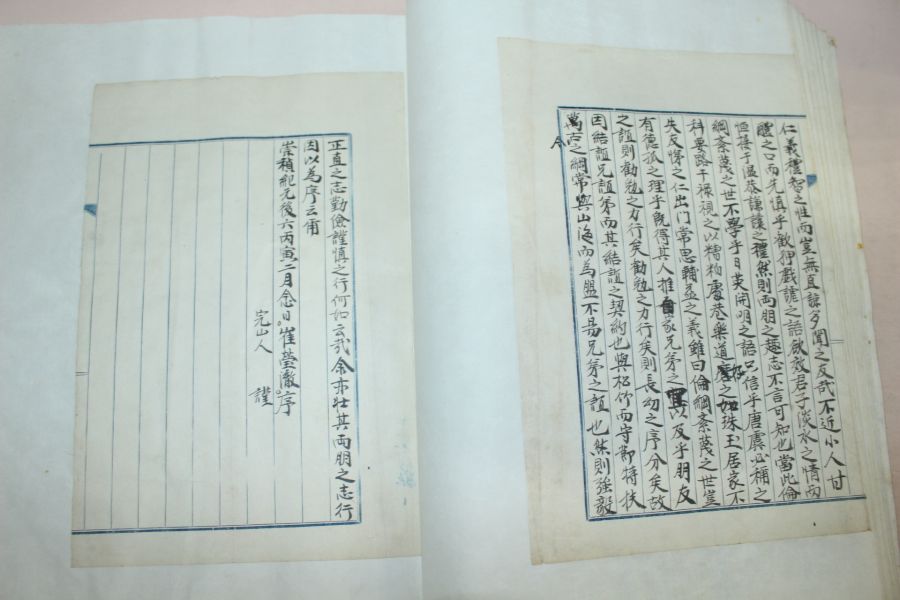 仁義禮智之性而豈無直諒多聞之友哉不近小人甘
醴之口而先慎乎歡狎戲謔之語欲效君子淡水之情而
恒接于溫恭謙讓之禮然則兩朋之趣志不言可知也當此倫
綱紊蔑之世不學乎日英開明之語只信乎唐虞必稱之
科要路干祿視之以糟粕處巷樂道居之如珠玉居家不
失友悌之仁出門常思輔益之義雖曰倫綱紊蔑之世豈
有德孤之理乎旣得其人推家兄弟之宜以及乎朋友
之誼則勸勉之力行矣勸勉之力行矣則長幼之序分矣故
因結誼兄誼弟而其結誼之契約也與松竹而守節特扶
萬古之綱常與山海而為盟不易兄弟之誼也然則強毅
正直之志勤儉謹慎之行何如云哉余亦壯其兩朋之志行
因以為序云爾
崇禎紀元後六丙寅二月念日崔瑩澈序
完山人
謹